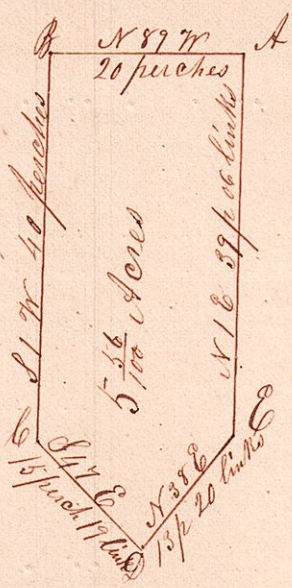 B N 89 W A
20 perches
S 1 W 40 perches
5 56/100 Acres
N 1 E 39 p 06 links
C
E
S 47 E
15 perch 19 links
D
N 38 E
13 p 20 links